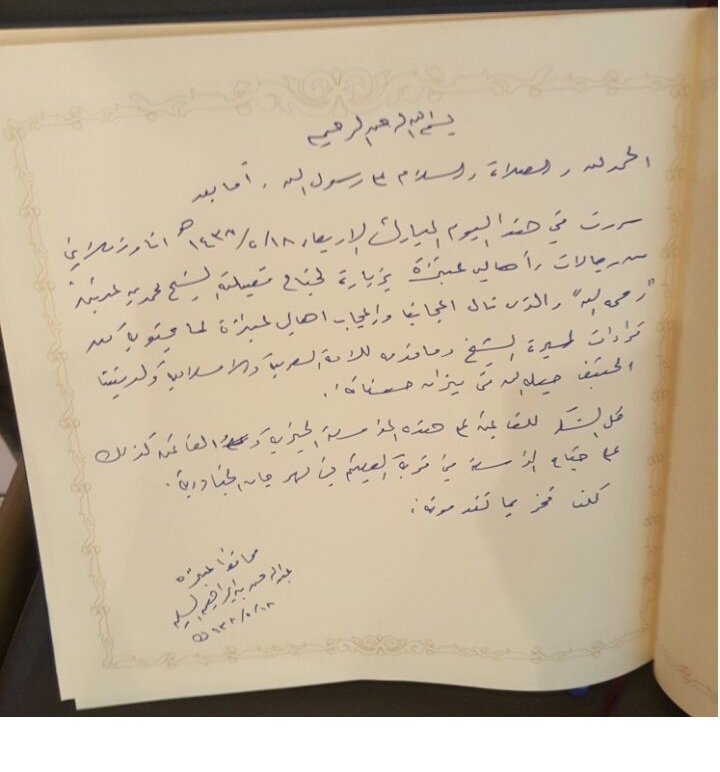 بسم الله الرحمن الرحيم
الحمد لله والصلاة والسلام على رسول الله . أما بعد
سررت في هذا اليوم المبارك الأربعاء ١٤٣٨/٥/١٨هـ أنا وزملائي
من رجالات وأهالي عنيزة بزيارة لجناح فضيلة الشيخ محمد بن عثيمين
"رحمه الله" والذي نال اعجابنا واعجاب اهالي عنيزة لما يحتويه من
لمسيرة الشيخ وما قدمه للأمة العربية والاسلامية ولديننا
الحنيف جعله الله في ميزان حسناته .
كل الشكر للقائمين على هذه المؤسسة الخيرية والقائمين كذلك
على جناح المؤسسة في قرية القصيم في مهرجان الجنادرية .
كلنا فخر بما تقدمونه .
محافظ عنيزة
عبدالرحمن بن ابراهيم السليم
١٤٣٨/٥/١٨هـ